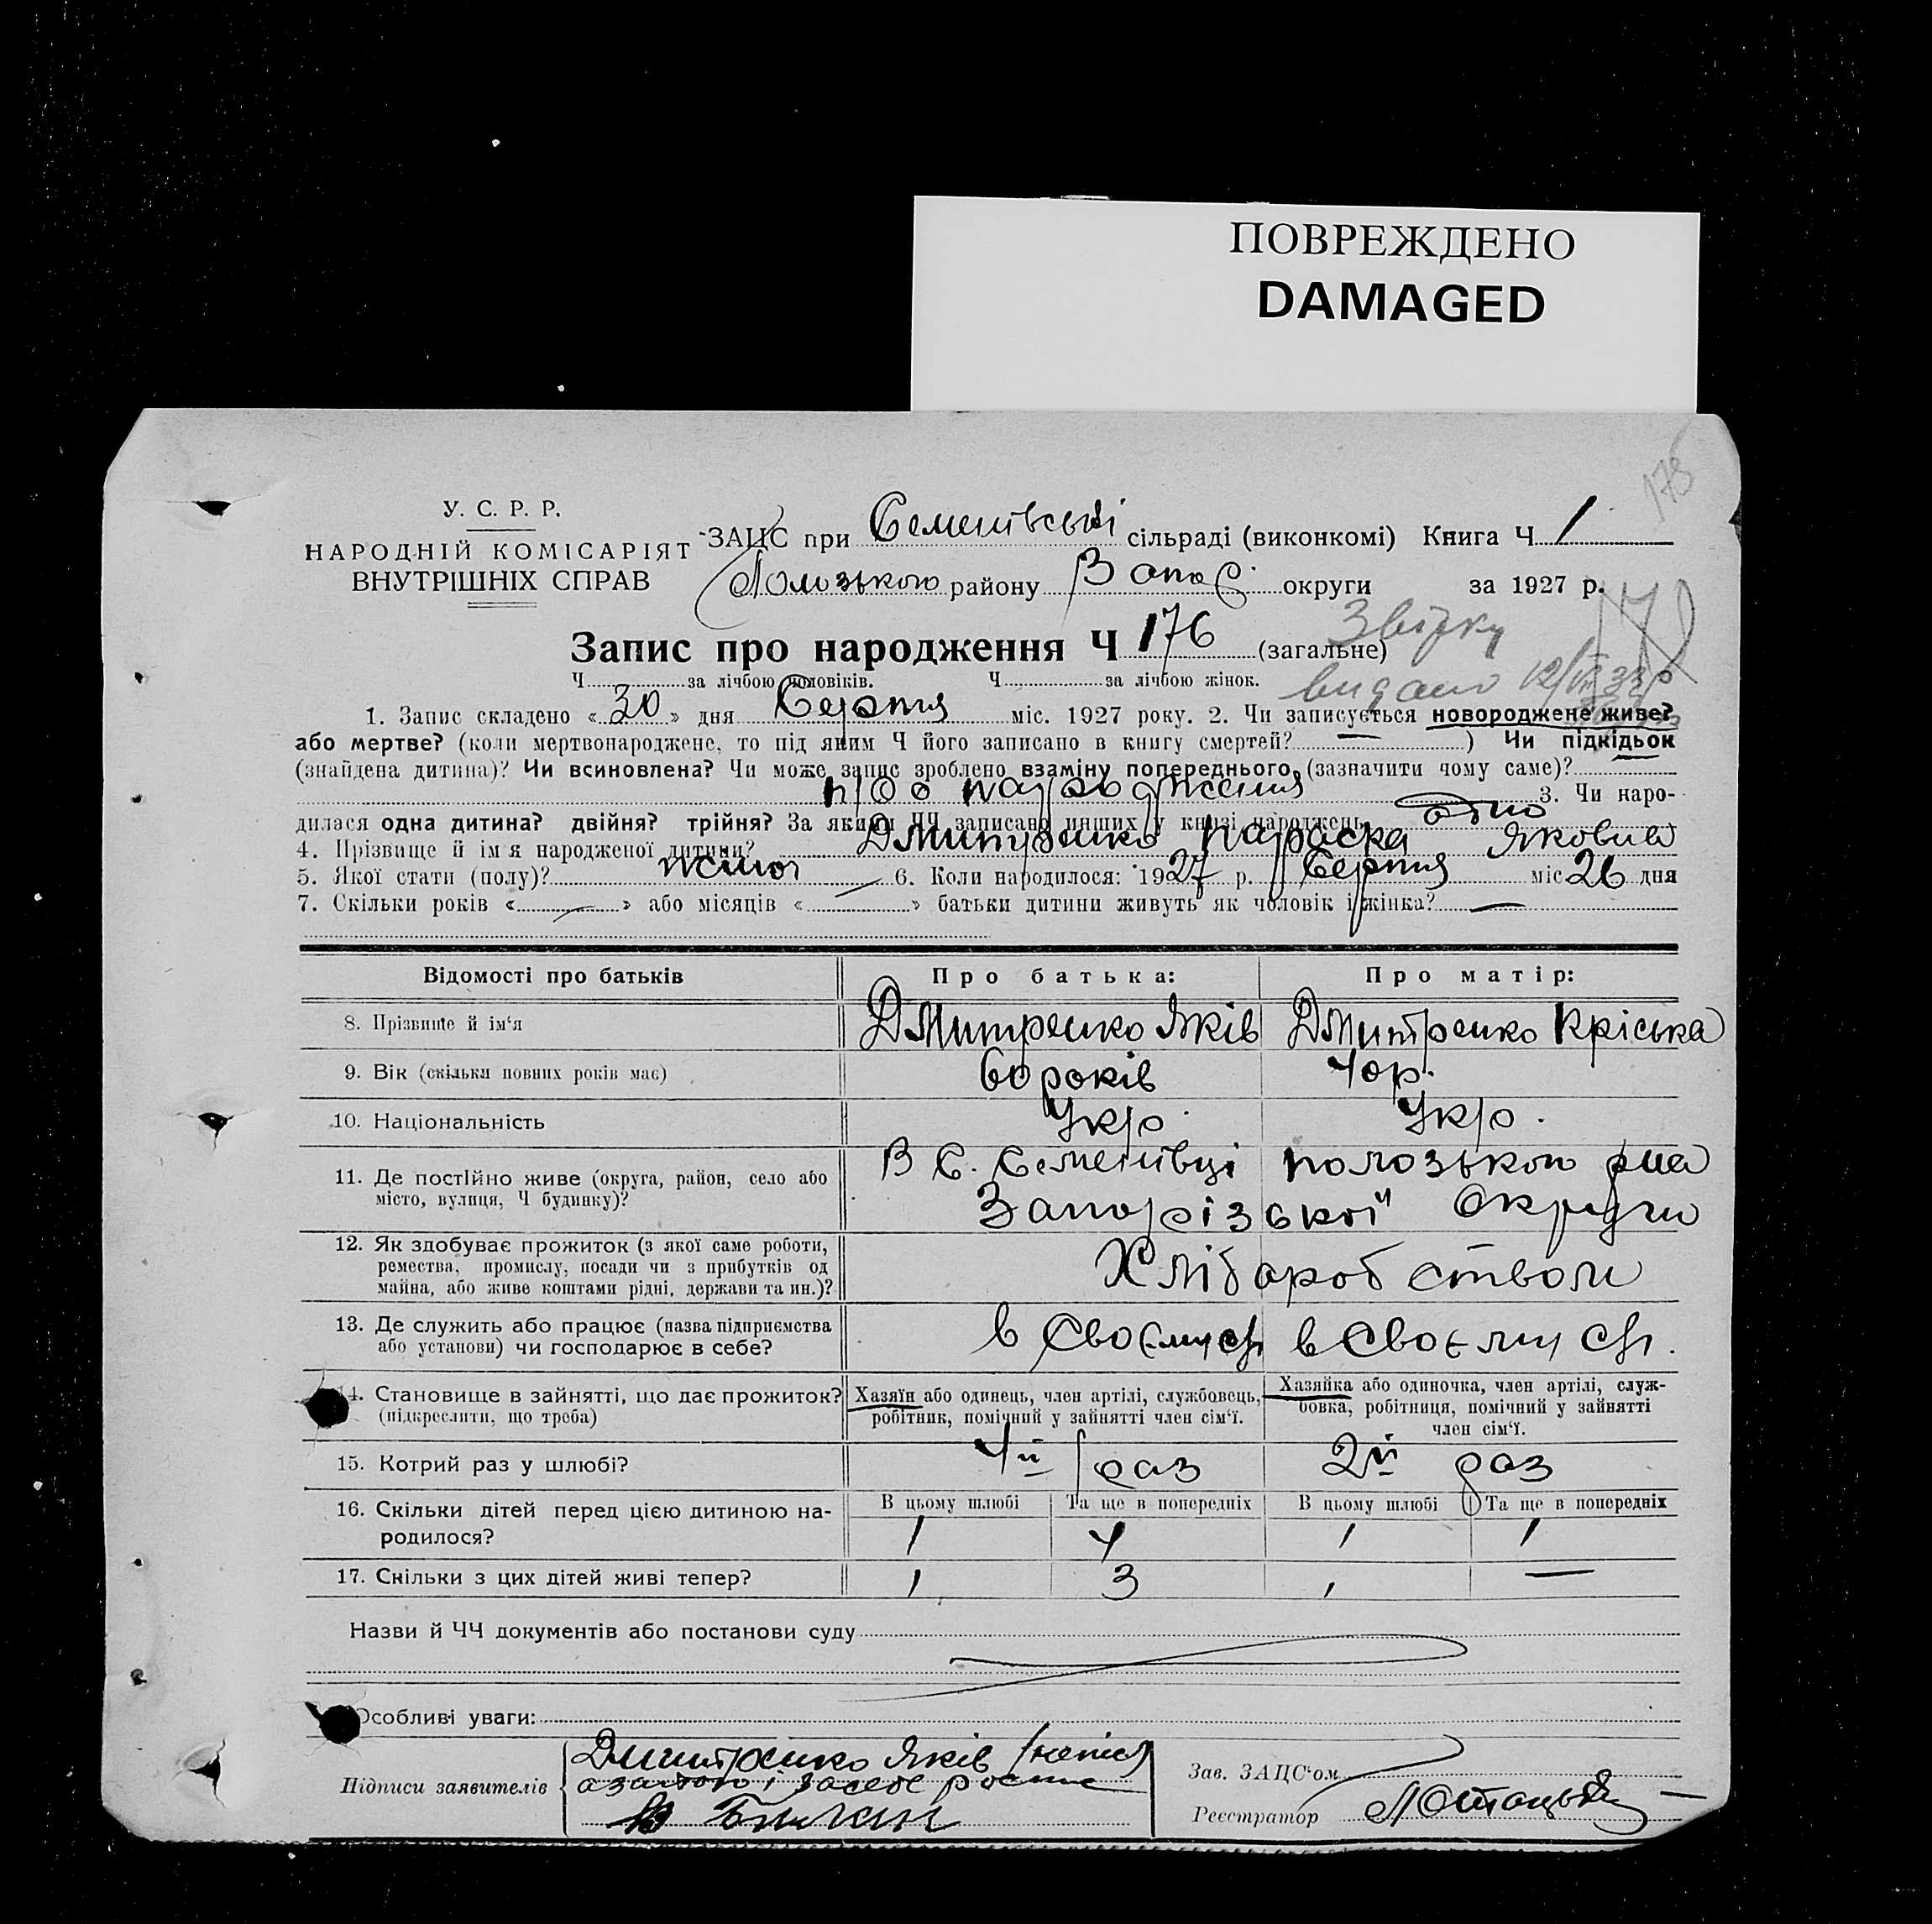 ПОВРЕЖДЕНО
DAMAGED
178
У. С. Р. Р.
НАРОДНІЙ КОМІСАРІЯТ
ВНУТРІШНІХ СПРАВ
ЗАЦС при Семенівській сільраді (виконкомі) Книга Ч 1
Полозького району Запор. округи за 1927 р.
Запис про народження Ч 176 (загальне)
Звірку
Ч за лічбою чоловіків. Ч за лічбою жінок.
видано 12/VII 33 р
1. Запис складено «30» дня Серпня міс. 1927 року. 2. Чи записується новороджене живе?
або мертве? (коли мертвонароджене, то під яким Ч його записано в книгу смертей? —) Чи підкідьок
(знайдена дитина)? Чи всиновлена? Чи може запис зроблено взаміну попереднього, (зазначити чому саме)?
про народження 3. Чи наро-
дилася одна дитина? двійня? трійня? За якими ЧЧ записано инших у книзі народжень одно
4. Прізвище й ім'я народженої дитини? Дмитренко Параска Яковна
5. Якої стати (полу)? жіноч 6. Коли народилося: 1927 р. Серпня міс 26 дня
7. Скільки років «—» або місяців «» батьки дитини живуть як чоловік і жінка? —
Відомості про батьків Про батька: Про матір:
8. Прізвище й ім'я Дмитренко Яків Дмитренко Кріська
9. Вік (скільки повних років має) 60 років 40р.
10. Національність Укр. Укр.
11. Де постійно живе (округа, район, село або місто, вулиця, Ч будинку)? В С. Семенівці полозького рна
Запорізської Округи
12. Як здобуває прожиток (з якої саме роботи,
ремества, промислу, посади чи з прибутків од
майна, або живе коштами рідні, держави та ин.)? Хліборобством
13. Де служить або працює (назва підприємства
або установи) чи господарює в себе? в своєму с/г в своєму с/г.
14. Становище в зайнятті, що дає прожиток?
(підкреслити, що треба)
Хазяїн або одинець, член артілі, службовець,
робітник, помічний у зайнятті член сім'ї.
Хазяйка або одиночка, член артілі, служ-
бовка, робітниця, помічний у зайнятті
член сім'ї.
15. Котрий раз у шлюбі? 4й раз 2й раз
16. Скільки дітей перед цією дитиною на-
родилося?
В цьому шлюбі Та ще в попередніх В цьому шлюбі Та ще в попередніх
1 4 1 1
17. Скільки з цих дітей живі тепер? 1 3 1 —
Назви й ЧЧ документів або постанови суду
Особливі уваги:
Підписи заявителів Дмитренко Яків
а за його
Зав. ЗАЦС'ом
Реєстратор